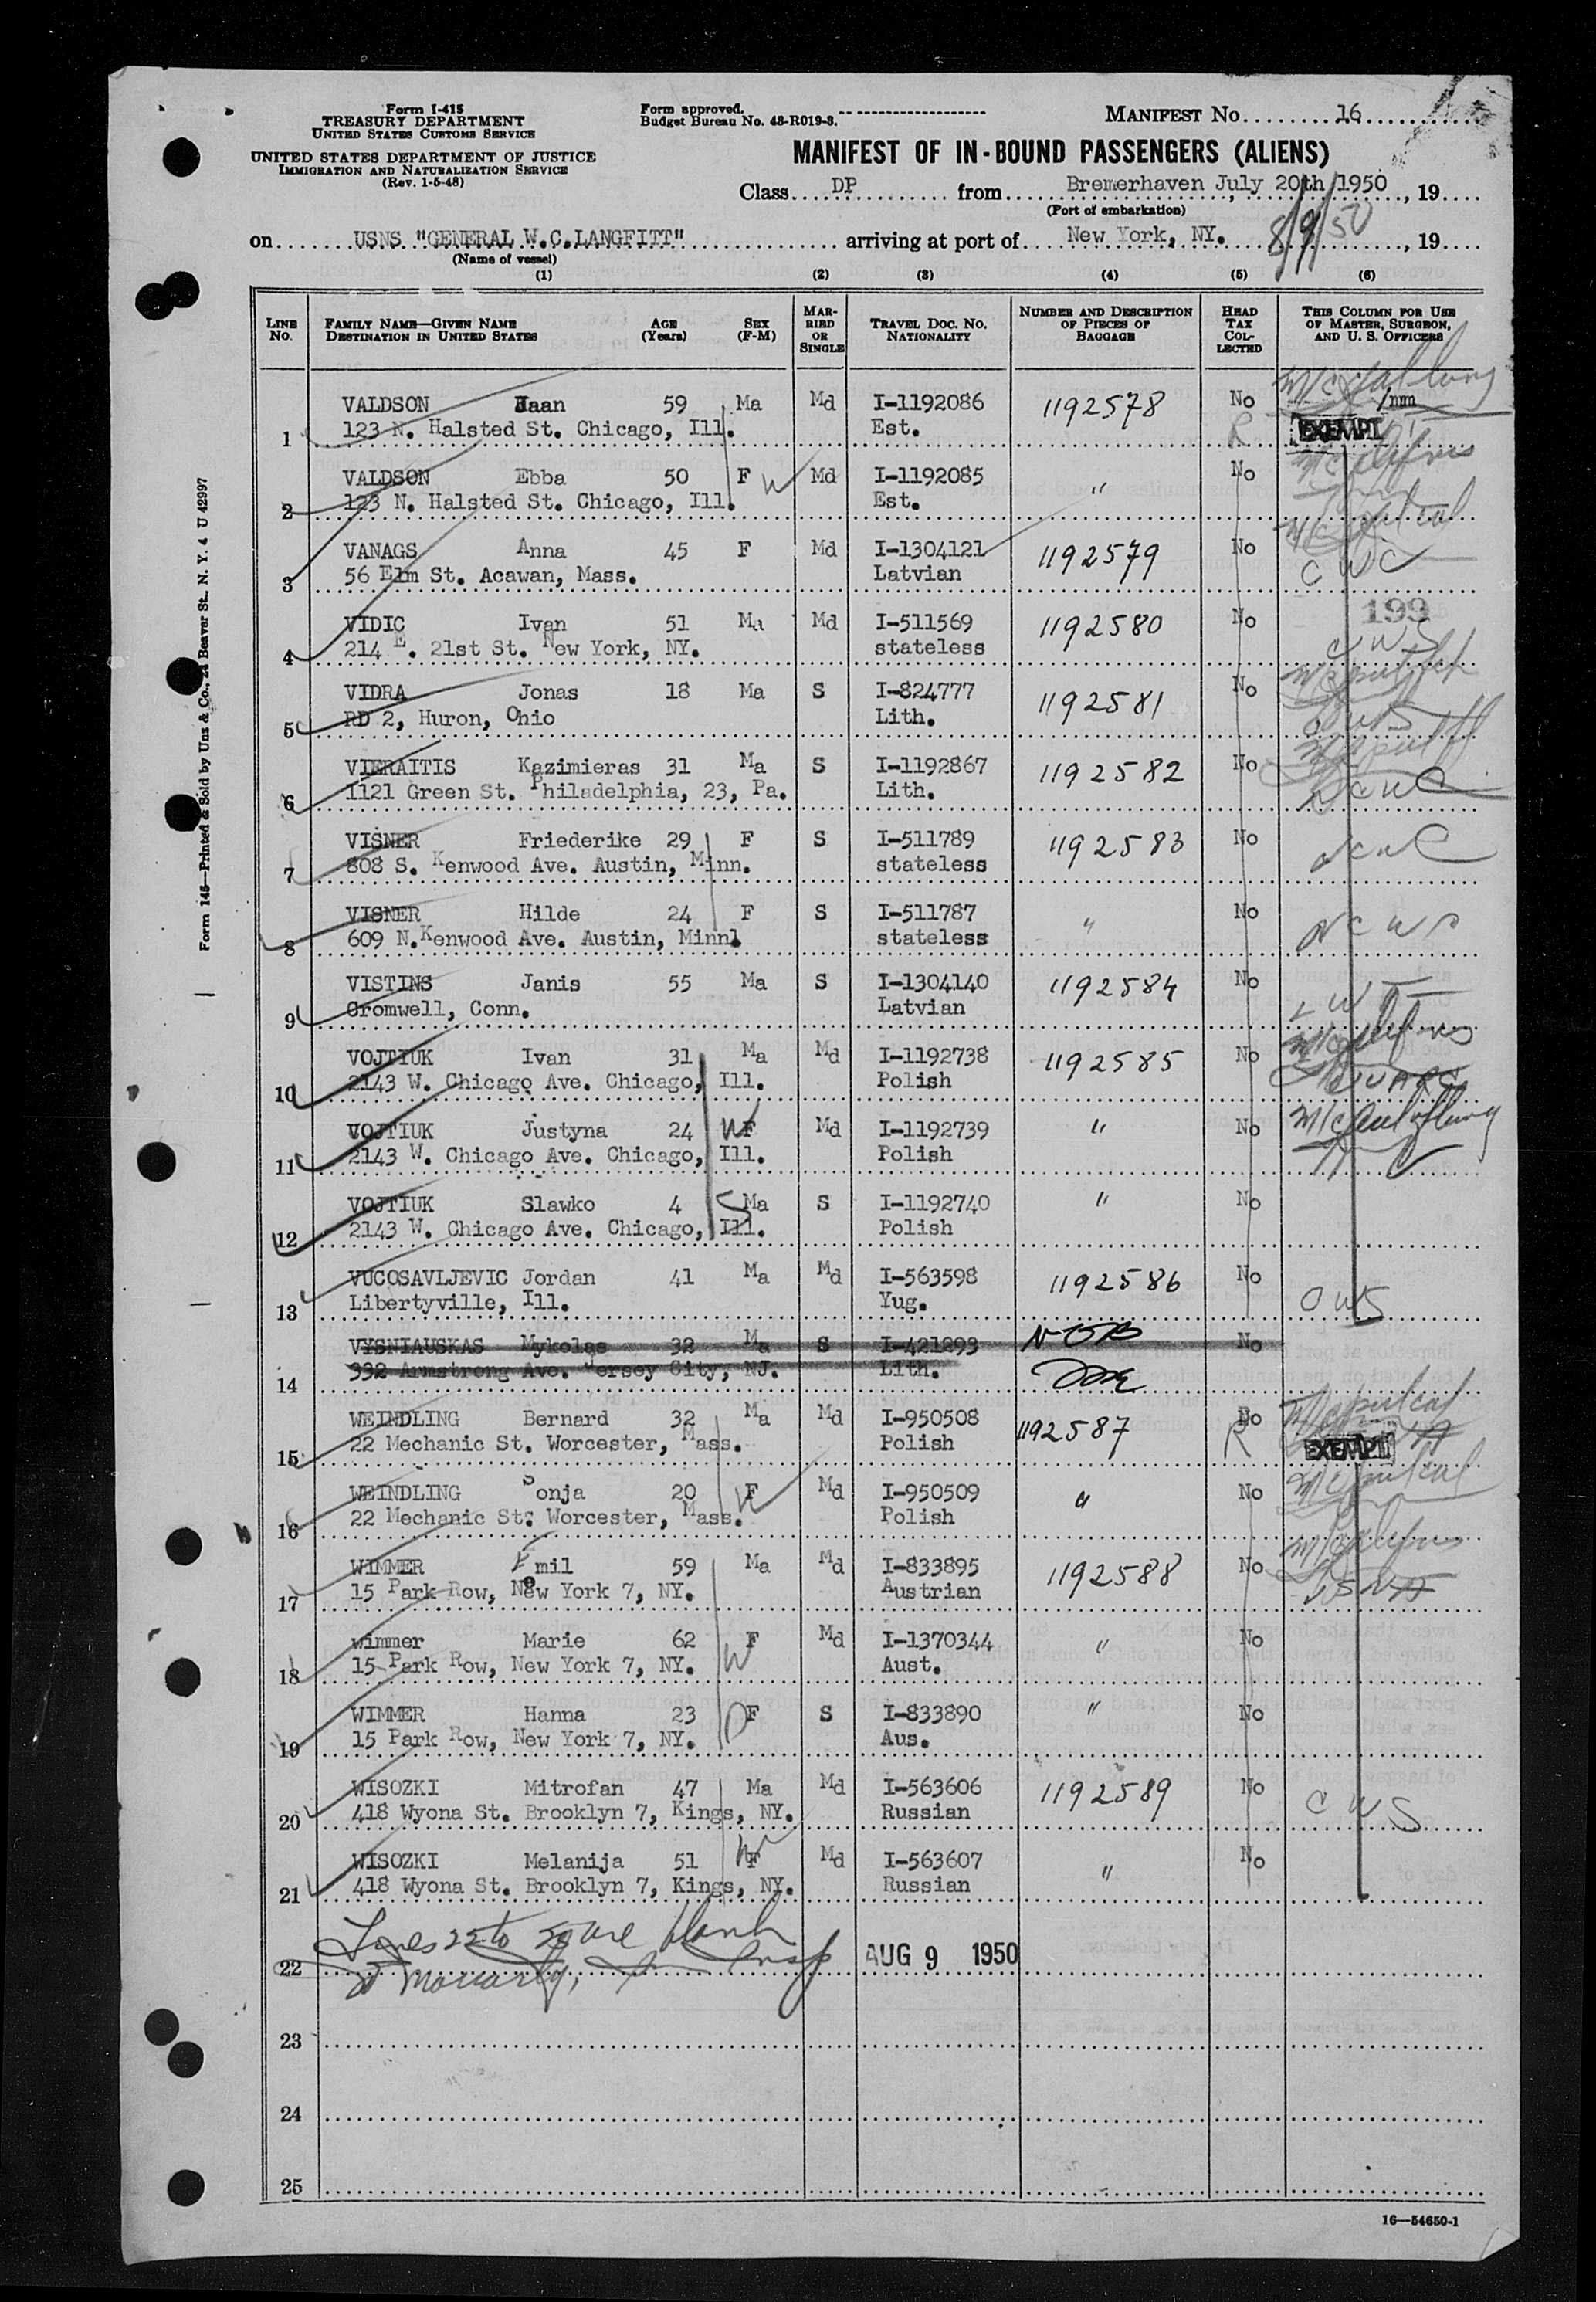 Form I-415
TREASURY DEPARTMENT
UNITED STATES CUSTOMS SERVICE
UNITED STATES DEPARTMENT OF JUSTICE
IMMIGRATION AND NATURALIZATION SERVICE
(Rev. 1-5-48)
Form approved.
Budget Bureau No. 43-R019-3.
MANIFEST No. 16
MANIFEST OF IN-BOUND PASSENGERS (ALIENS)
Class DP from Bremerhaven July 20th 1950, 19
(Port of embarkation)
on USNS "GENERAL W.C.LANGFITT" arriving at port of New York, NY. 8/9/50, 19
(Name of vessel)
(1) (2) (3) (4) (5) (6)
LINE No. FAMILY NAME—GIVEN NAME DESTINATION IN UNITED STATES AGE (Years) SEX (F-M) MARRIED OR SINGLE TRAVEL DOC. NO. NATIONALITY NUMBER AND DESCRIPTION OF PIECES OF BAGGAGE HEAD TAX COLLECTED THIS COLUMN FOR USE OF MASTER, SURGEON, AND U. S. OFFICERS
VALDSON Jaan 59 Ma Md I-1192086 1192578 No
1 123 N. Halsted St. Chicago, Ill. Est. R EXEMPT
VALDSON Ebba 50 F W Md I-1192085 " No
2 123 N. Halsted St. Chicago, Ill. Est.
VANAGS Anna 45 F Md I-1304121 1192579 No
3 56 Elm St. Acawan, Mass. Latvian CWC
VIDIC Ivan 51 Ma Md I-511569 1192580 No 199
4 214 E. 21st St. New York, NY. stateless CWS
VIDRA Jonas 18 Ma S I-824777 1192581 No
5 RD 2, Huron, Ohio Lith.
VIERAITIS Kazimieras 31 Ma S I-1192867 1192582 No
6 1121 Green St. Philadelphia, 23, Pa. Lith.
VISNER Friederike 29 F S I-511789 1192583 No
7 808 S. Kenwood Ave. Austin, Minn. stateless
VISNER Hilde 24 F S I-511787 " No
8 609 N.Kenwood Ave. Austin, Minn. stateless
VISTINS Janis 55 Ma S I-1304140 1192584 No
9 Cromwell, Conn. Latvian
VOJTIUK Ivan 31 Ma Md I-1192738 1192585 No
10 2143 W. Chicago Ave. Chicago, Ill. Polish
VOJTIUK Justyna 24 W F Md I-1192739 " No
11 2143 W. Chicago Ave. Chicago, Ill. Polish
VOJTIUK Slawko 4 Ma S I-1192740 " No
12 2143 W. Chicago Ave. Chicago, Ill. Polish
VUCOSAVLJEVIC Jordan 41 Ma Md I-563598 1192586 No
13 Libertyville, Ill. Yug. OWS
VYSNIAUSKAS Mykolas 32 Ma S I-421293 NOB No
14 332 Armstrong Ave. Jersey City, NJ. Lith.
WEINDLING Bernard 32 Ma Md I-950508 1192587 No
15 22 Mechanic St. Worcester, Mass. Polish R EXEMPT
WEINDLING Sonja 20 F W Md I-950509 " No
16 22 Mechanic St. Worcester, Mass. Polish
WIMMER Emil 59 Ma Md I-833895 1192588 No
17 15 Park Row, New York 7, NY. Austrian
wimmer Marie 62 F Md I-1370344 " No
18 15 Park Row, New York 7, NY. W Aust.
WIMMER Hanna 23 D F S I-833890 " No
19 15 Park Row, New York 7, NY. Aus.
WISOZKI Mitrofan 47 Ma Md I-563606 1192589 No
20 418 Wyona St. Brooklyn 7, Kings, NY. Russian CWS
WISOZKI Melanija 51 W F Md I-563607 " No
21 418 Wyona St. Brooklyn 7, Kings, NY. Russian
Lines 22 to are blank
22 Moriarty, Insp AUG 9 1950
23
24
25
16—54650-1
Form 145—Printed & Sold by Uns & Co., 24 Beaver St., N. Y. 4 U 42997